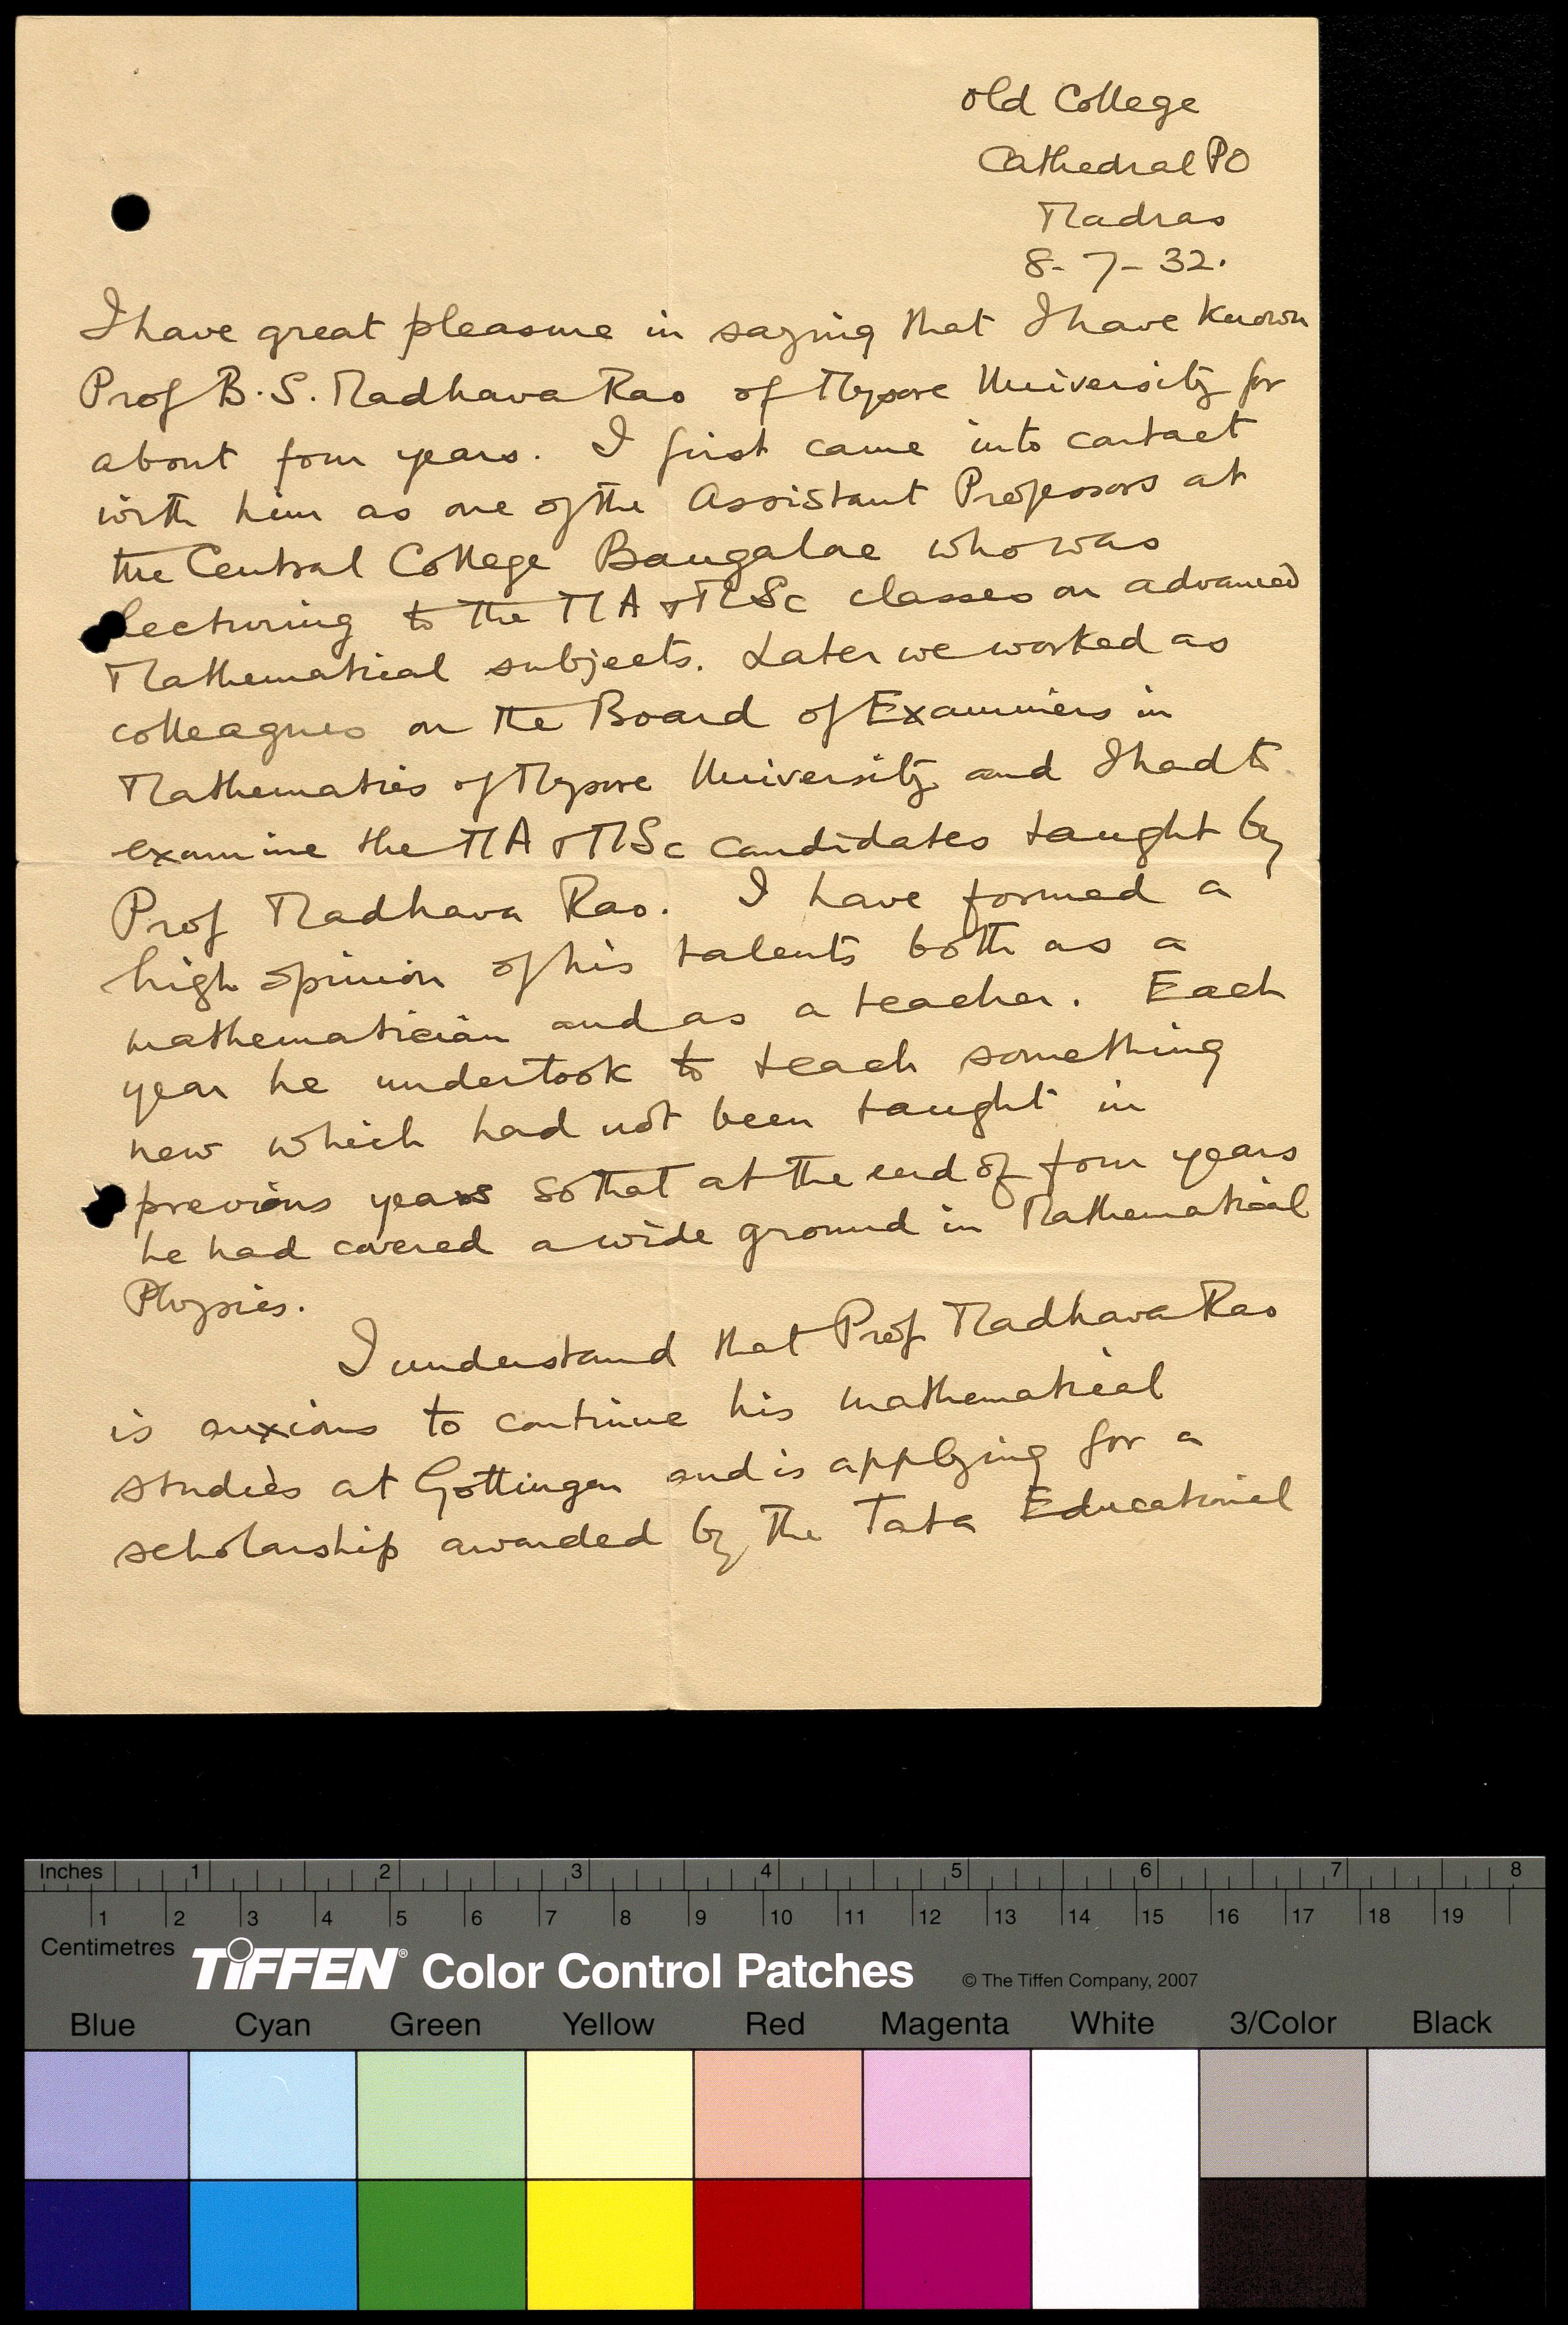 Old College
Cathedral PO
Madras
8-7-32.
I have great pleasure in saying that I have known
Prof B.S. Madhava Rao of Mysore University for
about four years. I first came into contact
with him as one of the Assistant Professors at
the Central College Bangalore who was
lecturing to the MA & MSc classes on advanced
Mathematical subjects. Later we worked as
colleagues on the Board of Examiners in
Mathematics of Mysore University and I had to
examine the MA & MSc candidates taught by
Prof Madhava Rao. I have formed a
high opinion of his talents both as a
mathematician and as a teacher. Each
year he undertook to teach something
new which had not been taught in
previous years so that at the end of four years
he had covered a wide ground in Mathematical
Physics.
I understand that Prof Madhava Rao
is anxious to continue his mathematical
studies at Gottingen and is applying for a
scholarship awarded by the Tata Educational
Inches 1 2 3 4 5 6 7 8
1 2 3 4 5 6 7 8 9 10 11 12 13 14 15 16 17 18 19
Centimetres
TIFFEN® Color Control Patches © The Tiffen Company, 2007
Blue Cyan Green Yellow Red Magenta White 3/Color Black